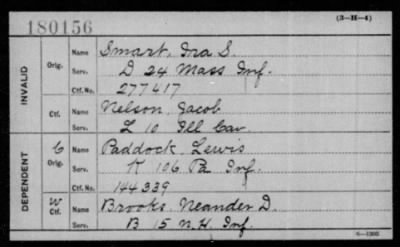 180156
(3-H-4)
INVALID
Orig.
Name Smart, Ira S.
Serv. D 24 Mass Inf.
Ctf. No. 277417
Ctf.
Name Nelson, Jacob
Serv. L 10 Ill Cav.
DEPENDENT
C
Orig.
Name Paddock, Lewis
Serv. K 106 Pa Inf.
Ctf. No. 144339
W
Ctf.
Name Brooks, Neander D.
Serv. B 15 N.H. Inf.